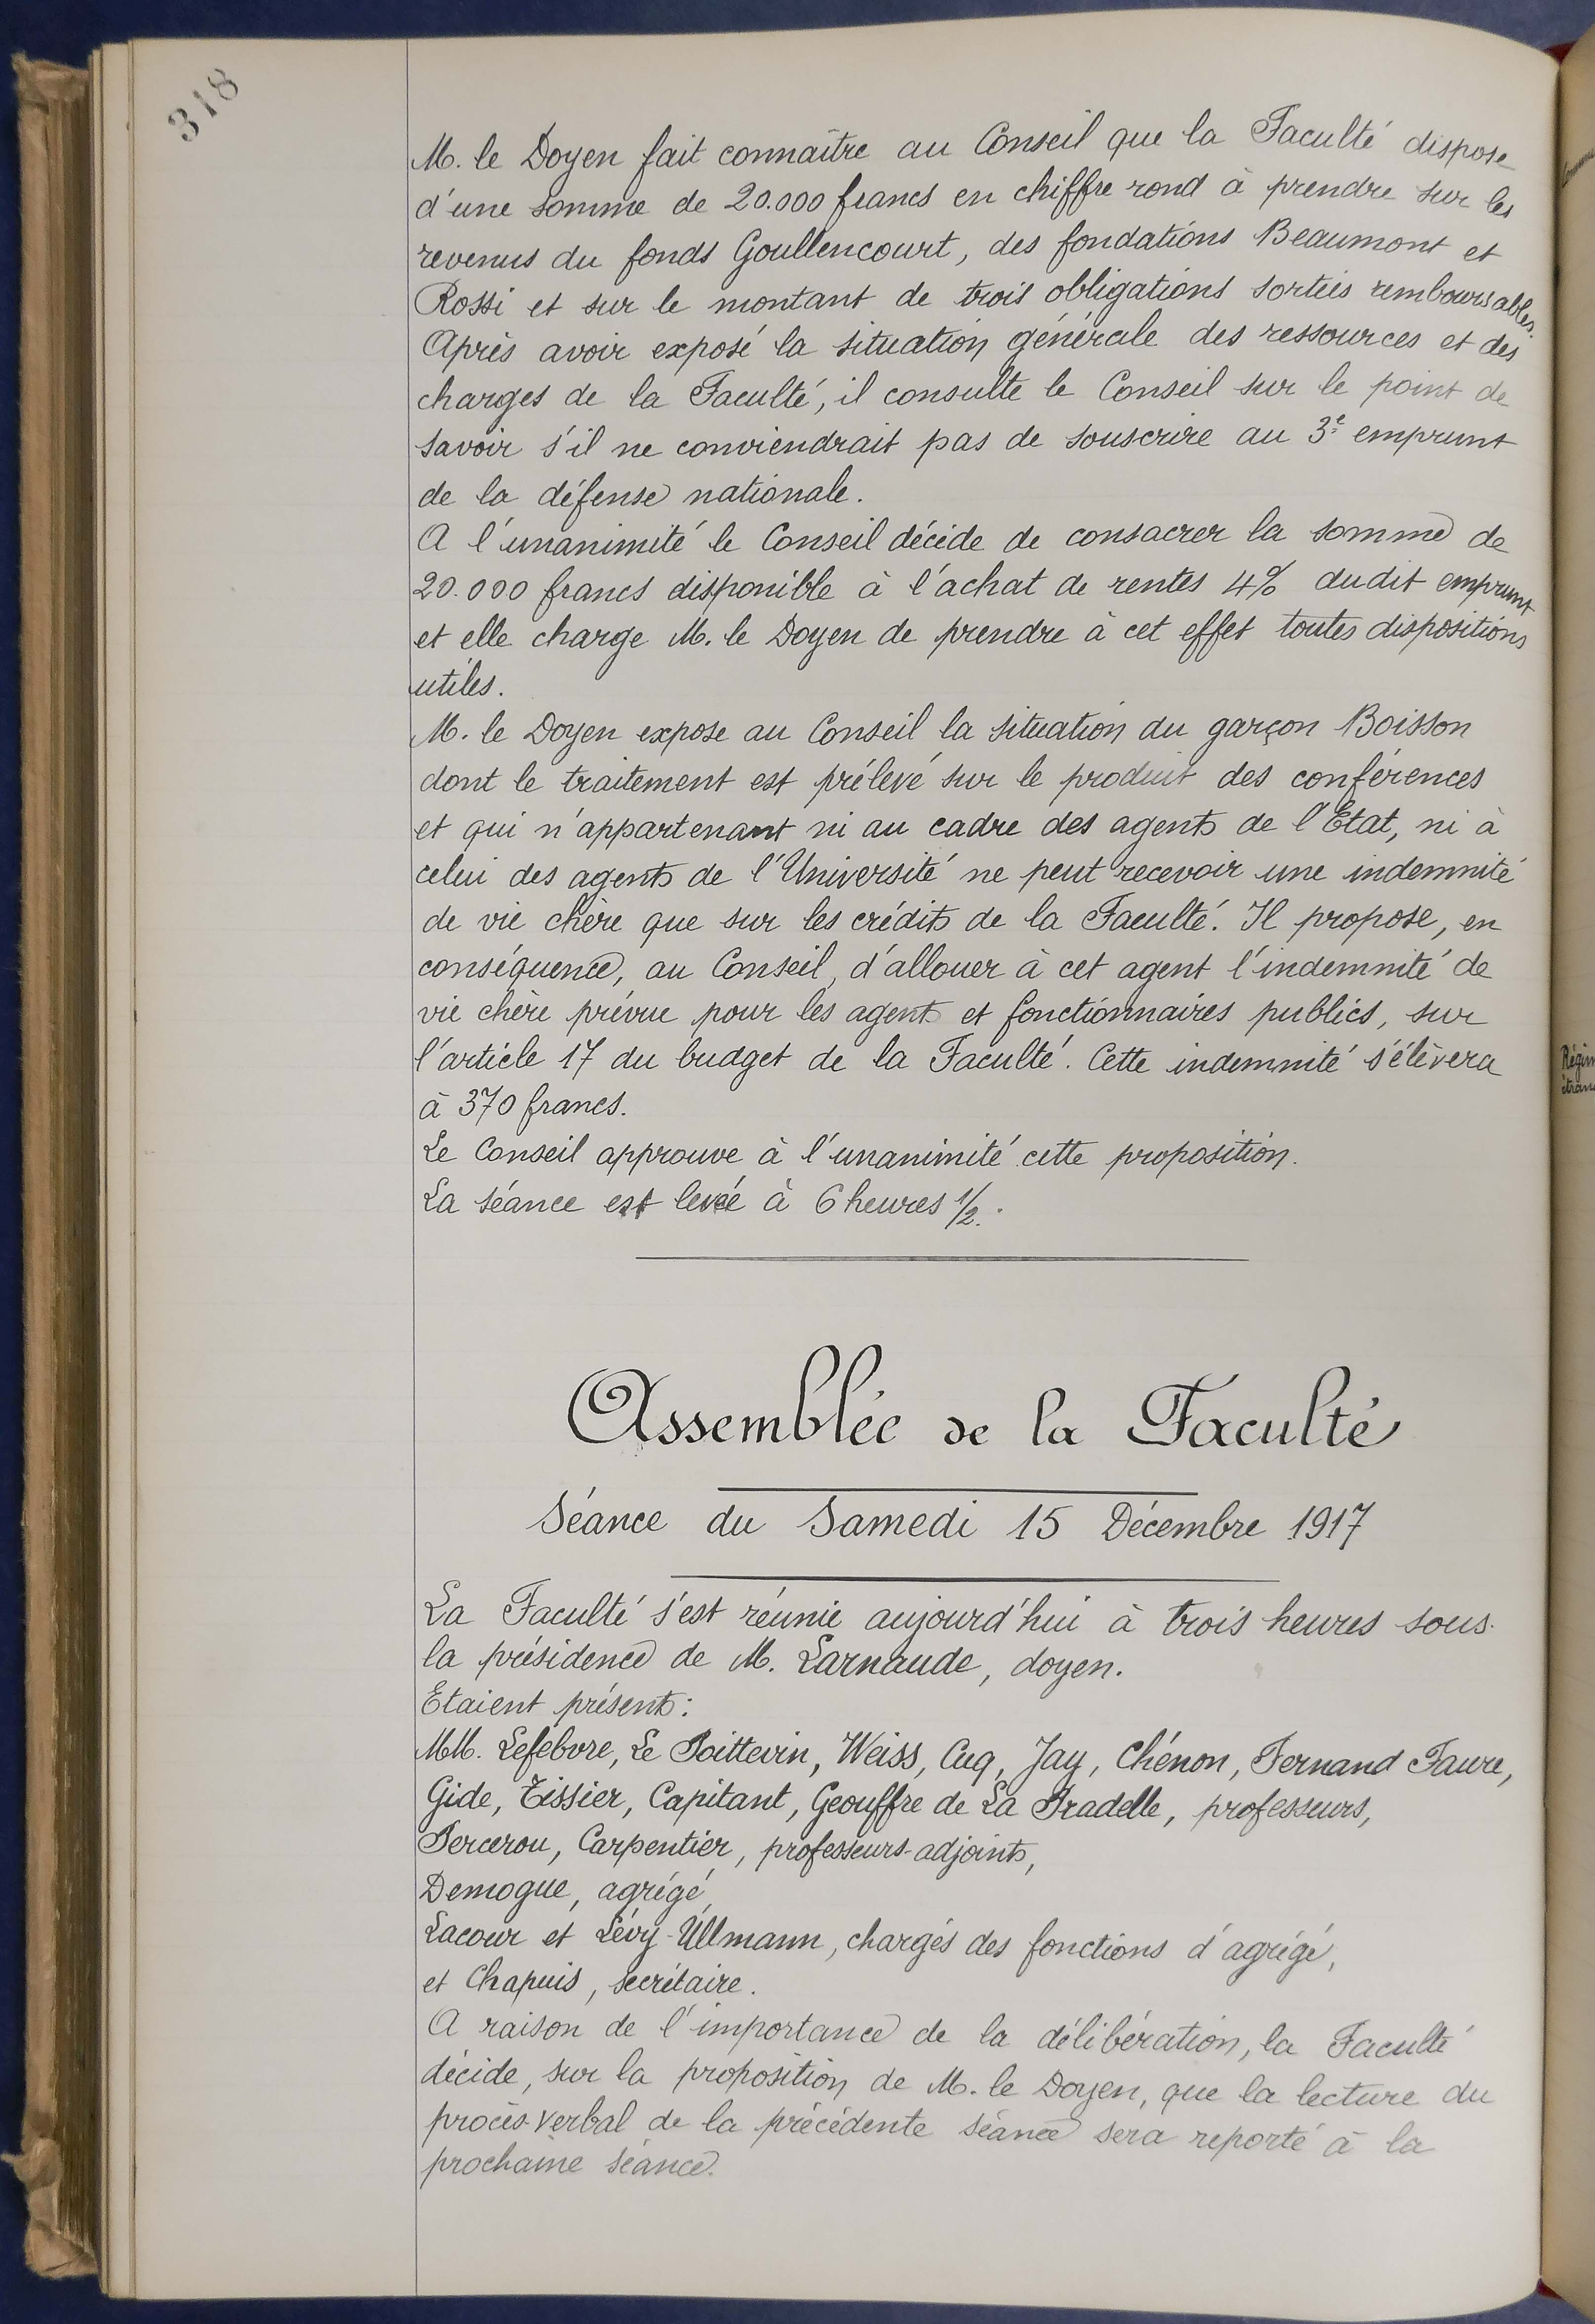 318
M. le Doyen fait connaître au Conseil que la Faculté dispose
d'une somme de 20.000 francs en chiffre rond à prendre sur les
revenus du fonds Goullencourt, des fondations Beaumont et
Rossi et sur le montant de trois obligations sorties remboursables.
Après avoir exposé la situation générale des ressources et des
charges de la Faculté, il consulte le Conseil sur le point de
savoir s'il ne conviendrait pas de souscrire au 3e emprunt
de la défense nationale.
A l'unanimité le Conseil décide de consacrer la somme de
20.000 francs disponible à l'achat de rentes 4% dudit emprunt
et elle charge M. le Doyen de prendre à cet effet toutes dispositions
utiles.
M. le Doyen expose au Conseil la situation du garçon Boisson
dont le traitement est prélevé sur le produit des conférences
et qui n'appartenant ni au cadre des agents de l'Etat, ni à
celui des agents de l'Université ne peut recevoir une indemnité
de vie chère que sur les crédits de la Faculté. Il propose, en
conséquence, au Conseil, d'allouer à cet agent l'indemnité de
vie chère prévue pour les agents et fonctionnaires publics, sur
l'article 17 du budget de la Faculté. Cette indemnité s'élèvera
à 370 francs.
Le Conseil approuve à l'unanimité cette proposition.
La séance est levée à 6 heures 1/2.
Assemblée de la Faculté
Séance du Samedi 15 Décembre 1917
La Faculté s'est réunie aujourd'hui à trois heures sous
la présidence de M. Larnaude, doyen.
Etaient présents:
MM. Lefebvre, Le Poittevin, Weiss, Cuq, Jay, Chénon, Fernand Faure,
Gide, Tissier, Capitant, Geouffre de La Pradelle, professeurs,
Percerou, Carpentier, professeurs-adjoints,
Demogue, agrégé,
Lacour et Lévy-Ullmann, chargés des fonctions d'agrégé,
et Chapuis, secrétaire.
A raison de l'importance de la délibération, la Faculté
décide, sur la proposition de M. le Doyen, que la lecture du
procès-verbal de la précédente séance sera reporté à la
prochaine séance.